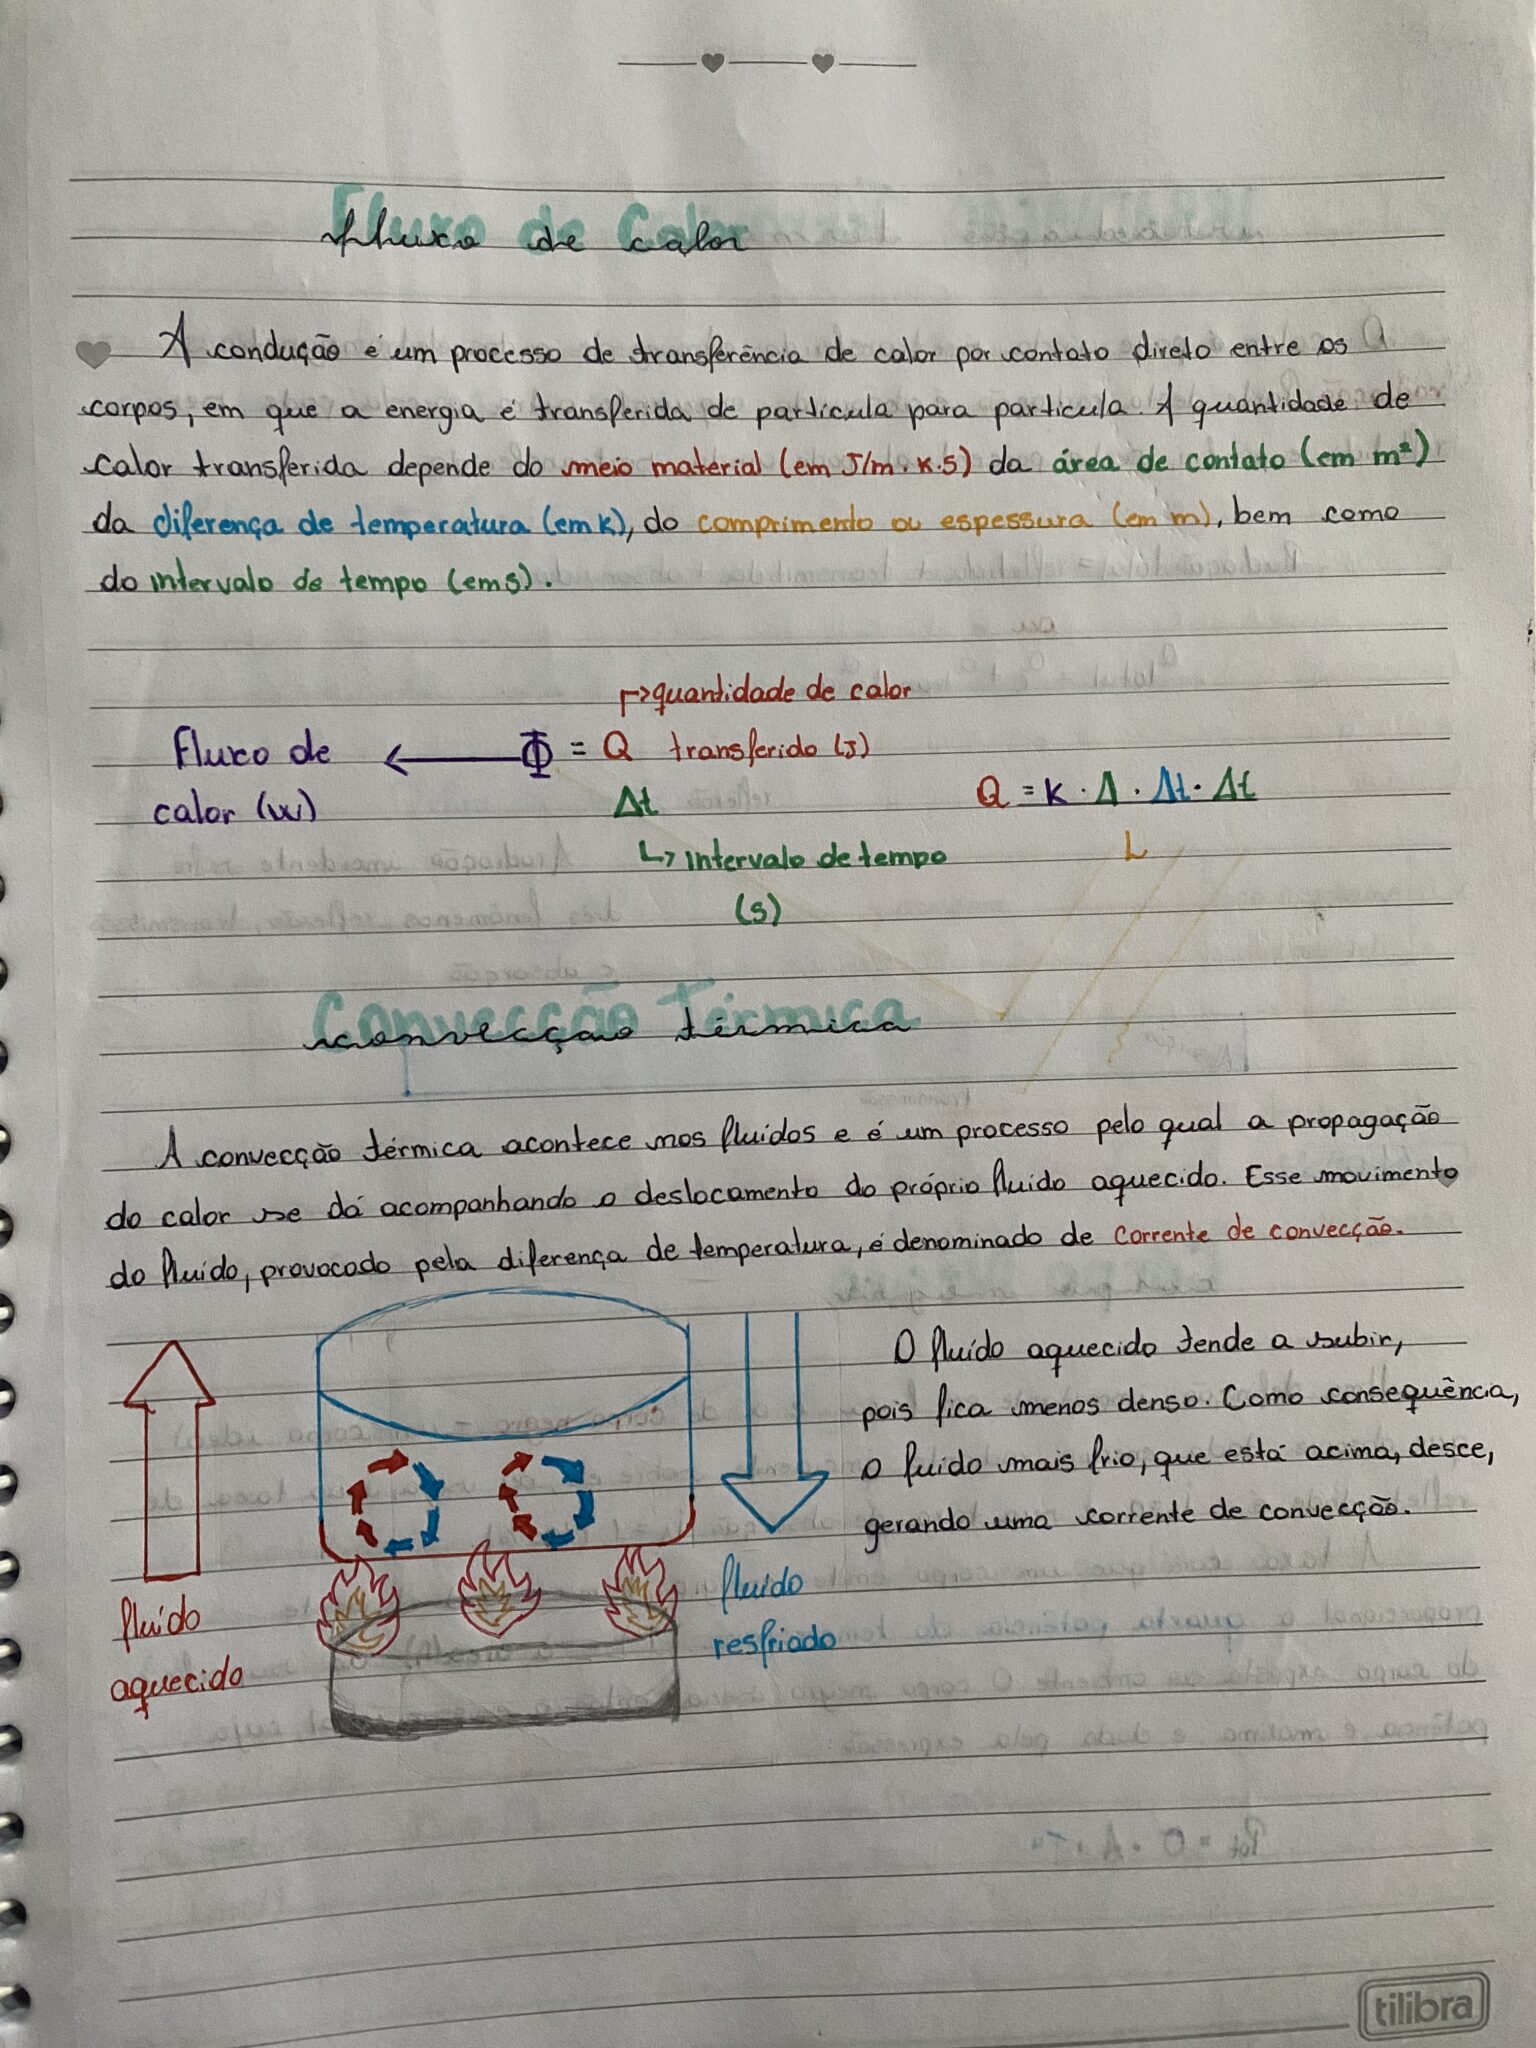 Fluxo de Calor
A condução é um processo de transferência de calor por contato direto entre os
corpos, em que a energia é transferida de partícula para partícula. A quantidade de
calor transferida depende do meio material (em J/m.K.S) da área de contato (em m²)
da diferença de temperatura (em K), do comprimento ou espessura (em m), bem como
do intervalo de tempo (em s).
↱quantidade de calor
Fluxo de ← Φ = Q transferido (J)
calor (W) Δt Q = K · A · Δt · Δt
↳ intervalo de tempo L
(s)
Convecção Térmica
A convecção térmica acontece nos fluidos e é um processo pelo qual a propagação
do calor se dá acompanhando o deslocamento do próprio fluido aquecido. Esse movimento
do fluído, provocado pela diferença de temperatura, é denominado de corrente de convecção.
O fluído aquecido tende a subir,
pois fica menos denso. Como consequência,
o fuido mais frio, que está acima, desce,
gerando uma corrente de convecção.
fluído
aquecido
fluído
resfriado
tilibra